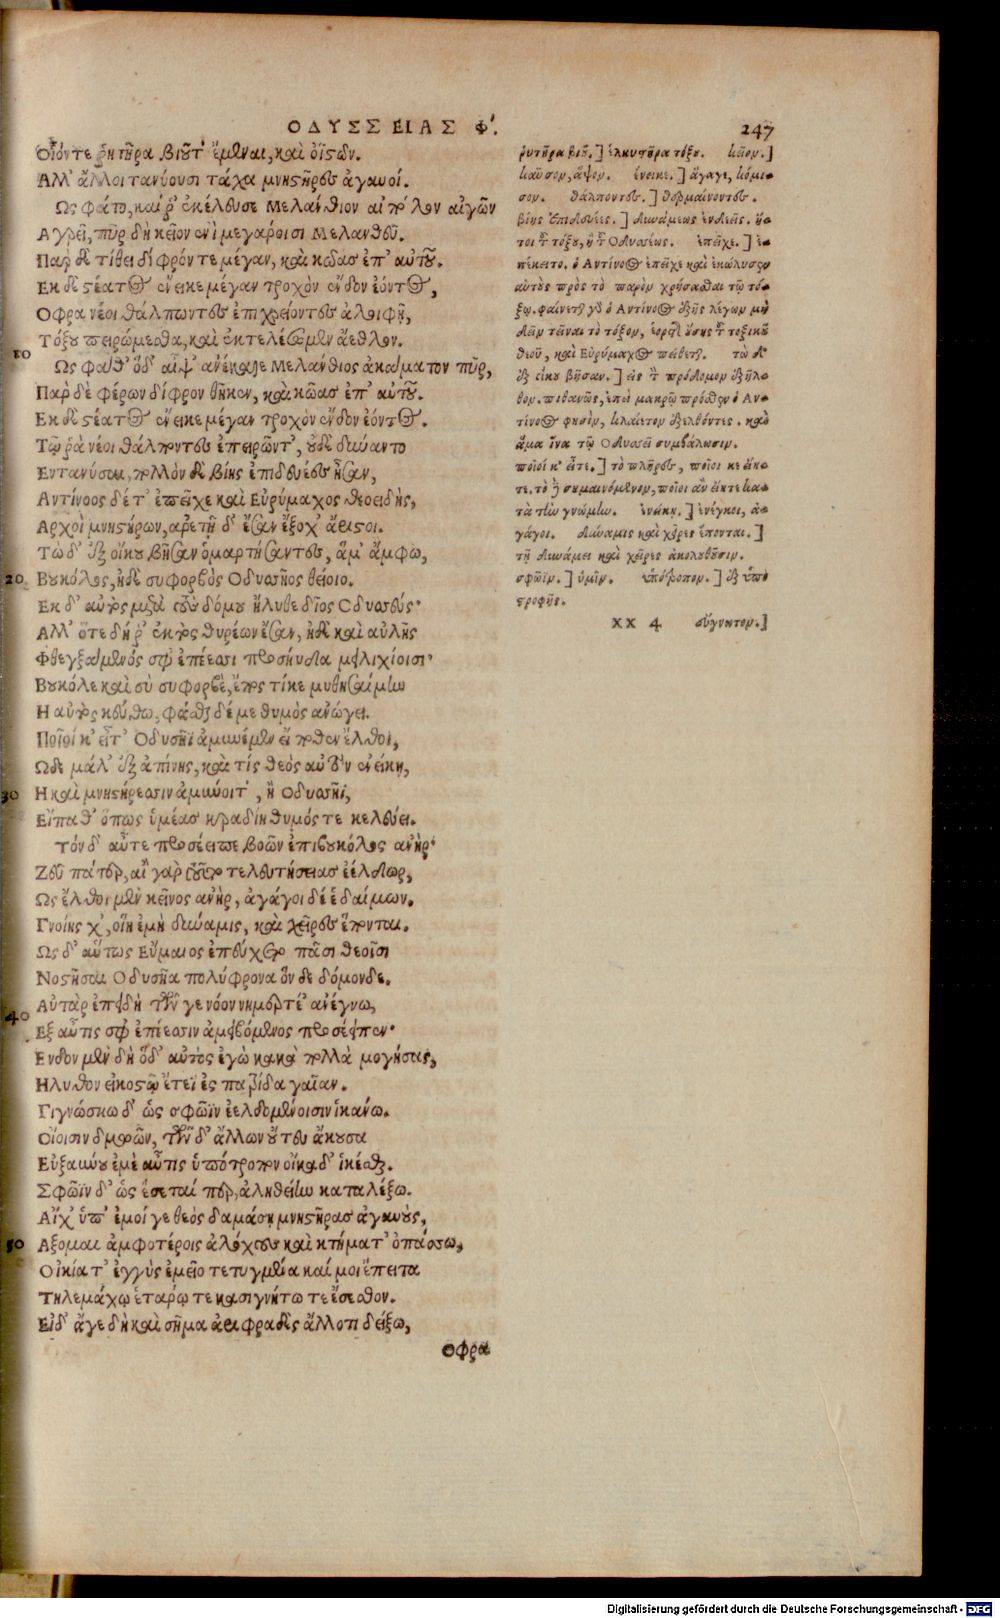 ΟΔΥΣΣΕΙΑΣ Φ΄.
247
Οἷόν τε ῥητῆρα βιοῦτ' ἔμεναι, καὶ ὀϊςῶν.
Αλλ' ἄλλοι τανύουσι τάχα μνηςῆρες ἀγαυοί.
Ως φάτο, καί ῥ' ἐκέλευσε Μελάνθιον αἰπόλον αἰγῶν
Αγρεῖ, πῦρ δὴ κεῖον ἐνὶ μεγάροισι Μελανθεῦ.
Παρ δὲ τίθει δίφρόν τε μέγαν, καὶ κῶας ἐπ' αὐτοῦ.
Εκ δὲ ςέατος ἔνεικε μέγαν τροχὸν ἔνδον ἐόντος,
Οφρα νέοι θάλποντες ἐπιχρείοντες ἀλοιφῇ,
10
Τόξου πειρώμεσθα, καὶ ἐκτελέωμεν ἄεθλον.
Ως φάθ' ὅδ' αἶψ' ἀνέκαιε Μελάνθιος ἀκάματον πῦρ,
Παρ δὲ φέρων δίφρον θῆκεν, καὶ κῶας ἐπ' αὐτοῦ.
Εκ δὲ ςέατος ἔνεικε μέγαν τροχὸν ἔνδον ἐόντος.
Τῷ ῥὰ νέοι θάλποντες ἐπειρῶντ', οὐδὲ δύναντο
Εντανύσαι, πολλὸν δὲ βίης ἐπιδευέες ἦσαν,
Αντίνοος δέ τ' ἐπεῖχε καὶ Εὐρύμαχος θεοειδὴς,
Αρχοὶ μνηςήρων, ἀρετῇ δ' ἔσαν ἔξοχ' ἄριςοι.
Τὼ δ' ἐξ οἴκου βῆσαν ὁμαρτήσαντες, ἅμ' ἄμφω,
20
Βουκόλος, ἠδὲ συφορβὸς Οδυσσῆος θείοιο.
Εκ δ' αὐτὸς μετὰ τοὺς δόμου ἤλυθε δῖος Οδυσσεύς·
Αλλ' ὅτε δή ῥ' ἐκτὸς θυρέων ἔσαν, ἠδὲ καὶ αὐλῆς
Φθεγξάμενός σφ' ἐπέεσσι προσηύδα μειλιχίοισι·
Βουκόλε καὶ σὺ συφορβὲ, ἔπος τί κε μυθησαίμην
Η αὐτὸς κεύθω, φάσθαι δέ με θυμὸς ἀνώγει.
Ποῖοί κ' εἶτ' Οδυσῆϊ ἀμυνέμεν εἴ ποθεν ἔλθοι,
Ωδε μάλ' ἐξαπίνης, καί τις θεὸς αὐτὸν ἐνείκῃ,
30
Η καὶ μνηςήρεσσιν ἀμύνοιτ', ἢ Οδυσσῆϊ,
Εἴπαθ' ὅπως ὑμέας κραδίη θυμός τε κελεύει.
Τόν δ' αὖτε προσέειπε βοῶν ἐπιβουκόλος ἀνήρ·
Ζεῦ πάτερ, αἲ γὰρ τοῦτο τελευτήσειας ἐέλδωρ,
Ως ἔλθοι μὲν κεῖνος ἀνὴρ, ἀγάγοι δέ ἑ δαίμων.
Γνοίης χ', οἵη ἐμὴ δύναμις, καὶ χεῖρες ἕπονται.
Ως δ' αὔτως Εὔμαιος ἐπεύχετο πᾶσι θεοῖσι
Νοςῆσαι Οδυσῆα πολύφρονα ὅν δε δόμονδε.
Αὐτὰρ ἐπειδὴ τῶν γε νόον νημερτέ' ἀνέγνω,
40
Εξ αὖτις σφ' ἐπέεσσιν ἀμειβόμενος προσέειπεν·
Ενδον μὲν δὴ ὅδ' αὐτὸς ἐγὼ κακὰ πολλὰ μογήσας,
Ηλυθον εἰκοςῷ ἔτεϊ ἐς πατρίδα γαῖαν.
Γιγνώσκω δ' ὡς σφῶϊν ἐελδομένοισιν ἱκάνω.
Οἴοισιν δμώων, τῶν δ' ἄλλων οὔτευ ἄκουσα
Εὐξαμένου ἐμὲ αὖτις ὑπότροπον οἴκαδ' ἱκέσθαι.
Σφῶϊν δ' ὡς ἔσεταί περ, ἀληθείην καταλέξω.
Αἴχ' ὑπ' ἐμοί γε θεὸς δαμάσῃ μνηςῆρας ἀγαυοὺς,
50
Αξομαι ἀμφοτέροις ἀλόχους καὶ κτήματ' ὀπάσσω,
Οἰκία τ' ἐγγὺς ἐμεῖο τετυγμένα καί μοι ἔπειτα
Τηλεμάχῳ ἑτάρω τε κασιγνήτω τε ἔσεσθον.
Εἰ δ' ἄγε δὴ καὶ σῆμα ἀριφραδὲς ἄλλο τι δείξω,
Οφρα
ῥυτῆρα βιοῦ.] ἑλκυςῆρα τόξου. κεῖον.]
καῦσον, ἅψον. ἔνεικε.] ἄγαγε, κόμι-
σον. θάλποντες.] θερμαίνοντες.
βίης ἐπιδευέες.] δυνάμεως ἐνδεεῖς. ἤ-
τοι τοῦ τόξου, ἢ τοῦ Οδυσσέως. ἐπεῖχε.] ἐ-
πέκειτο. ὁ Αντίνοος ἐπεῖχε καὶ ἐκώλυσεν
αὐτοὺς πρὸς τὸ παρὸν χρήσασθαι τῷ τό-
ξῳ. φαίνεται γὰρ ὁ Αντίνοος ἑξῆς λέγων μὴ
δεῖν τεῖναι τὸ τόξον, ἑορτῆς οὔσης τοῦ τοξικοῦ
θεοῦ, καὶ Εὐρύμαχος πείθεται. τὼ δ'
ἐξ οἴκου βῆσαν.] εἰς τὸ πρόδομον ἐξῆλ-
θον. πιθανῶς, ἐπεὶ μακρῷ πρόσθεν ὁ Αν-
τίνοος φησὶν, κλαίετον ἐξελθόντες. καὶ
ἅμα ἵνα τῷ Οδυσσεῖ συμβάλωσιν.
ποῖοί κ' εἶτε.] τὸ πλῆρες, ποῖοι κε εἴη-
τε. τὸ δὲ σημαινόμενον, ποῖοι ἂν εἴητε κα-
τὰ τὴν γνώμην. ἐνείκῃ.] ἐνέγκοι, ἀ-
γάγοι. δύναμις καὶ χεῖρες ἕπονται.]
τῇ δυνάμει καὶ χεῖρες ἀκολουθοῦσιν.
σφῶϊν.] ὑμῖν. ὑπότροπον.] ἐξ ὑπο
ςροφῆς.
XX 4 εὔγνωτον.]
Digitalisierung gefördert durch die Deutsche Forschungsgemeinschaft - DFG